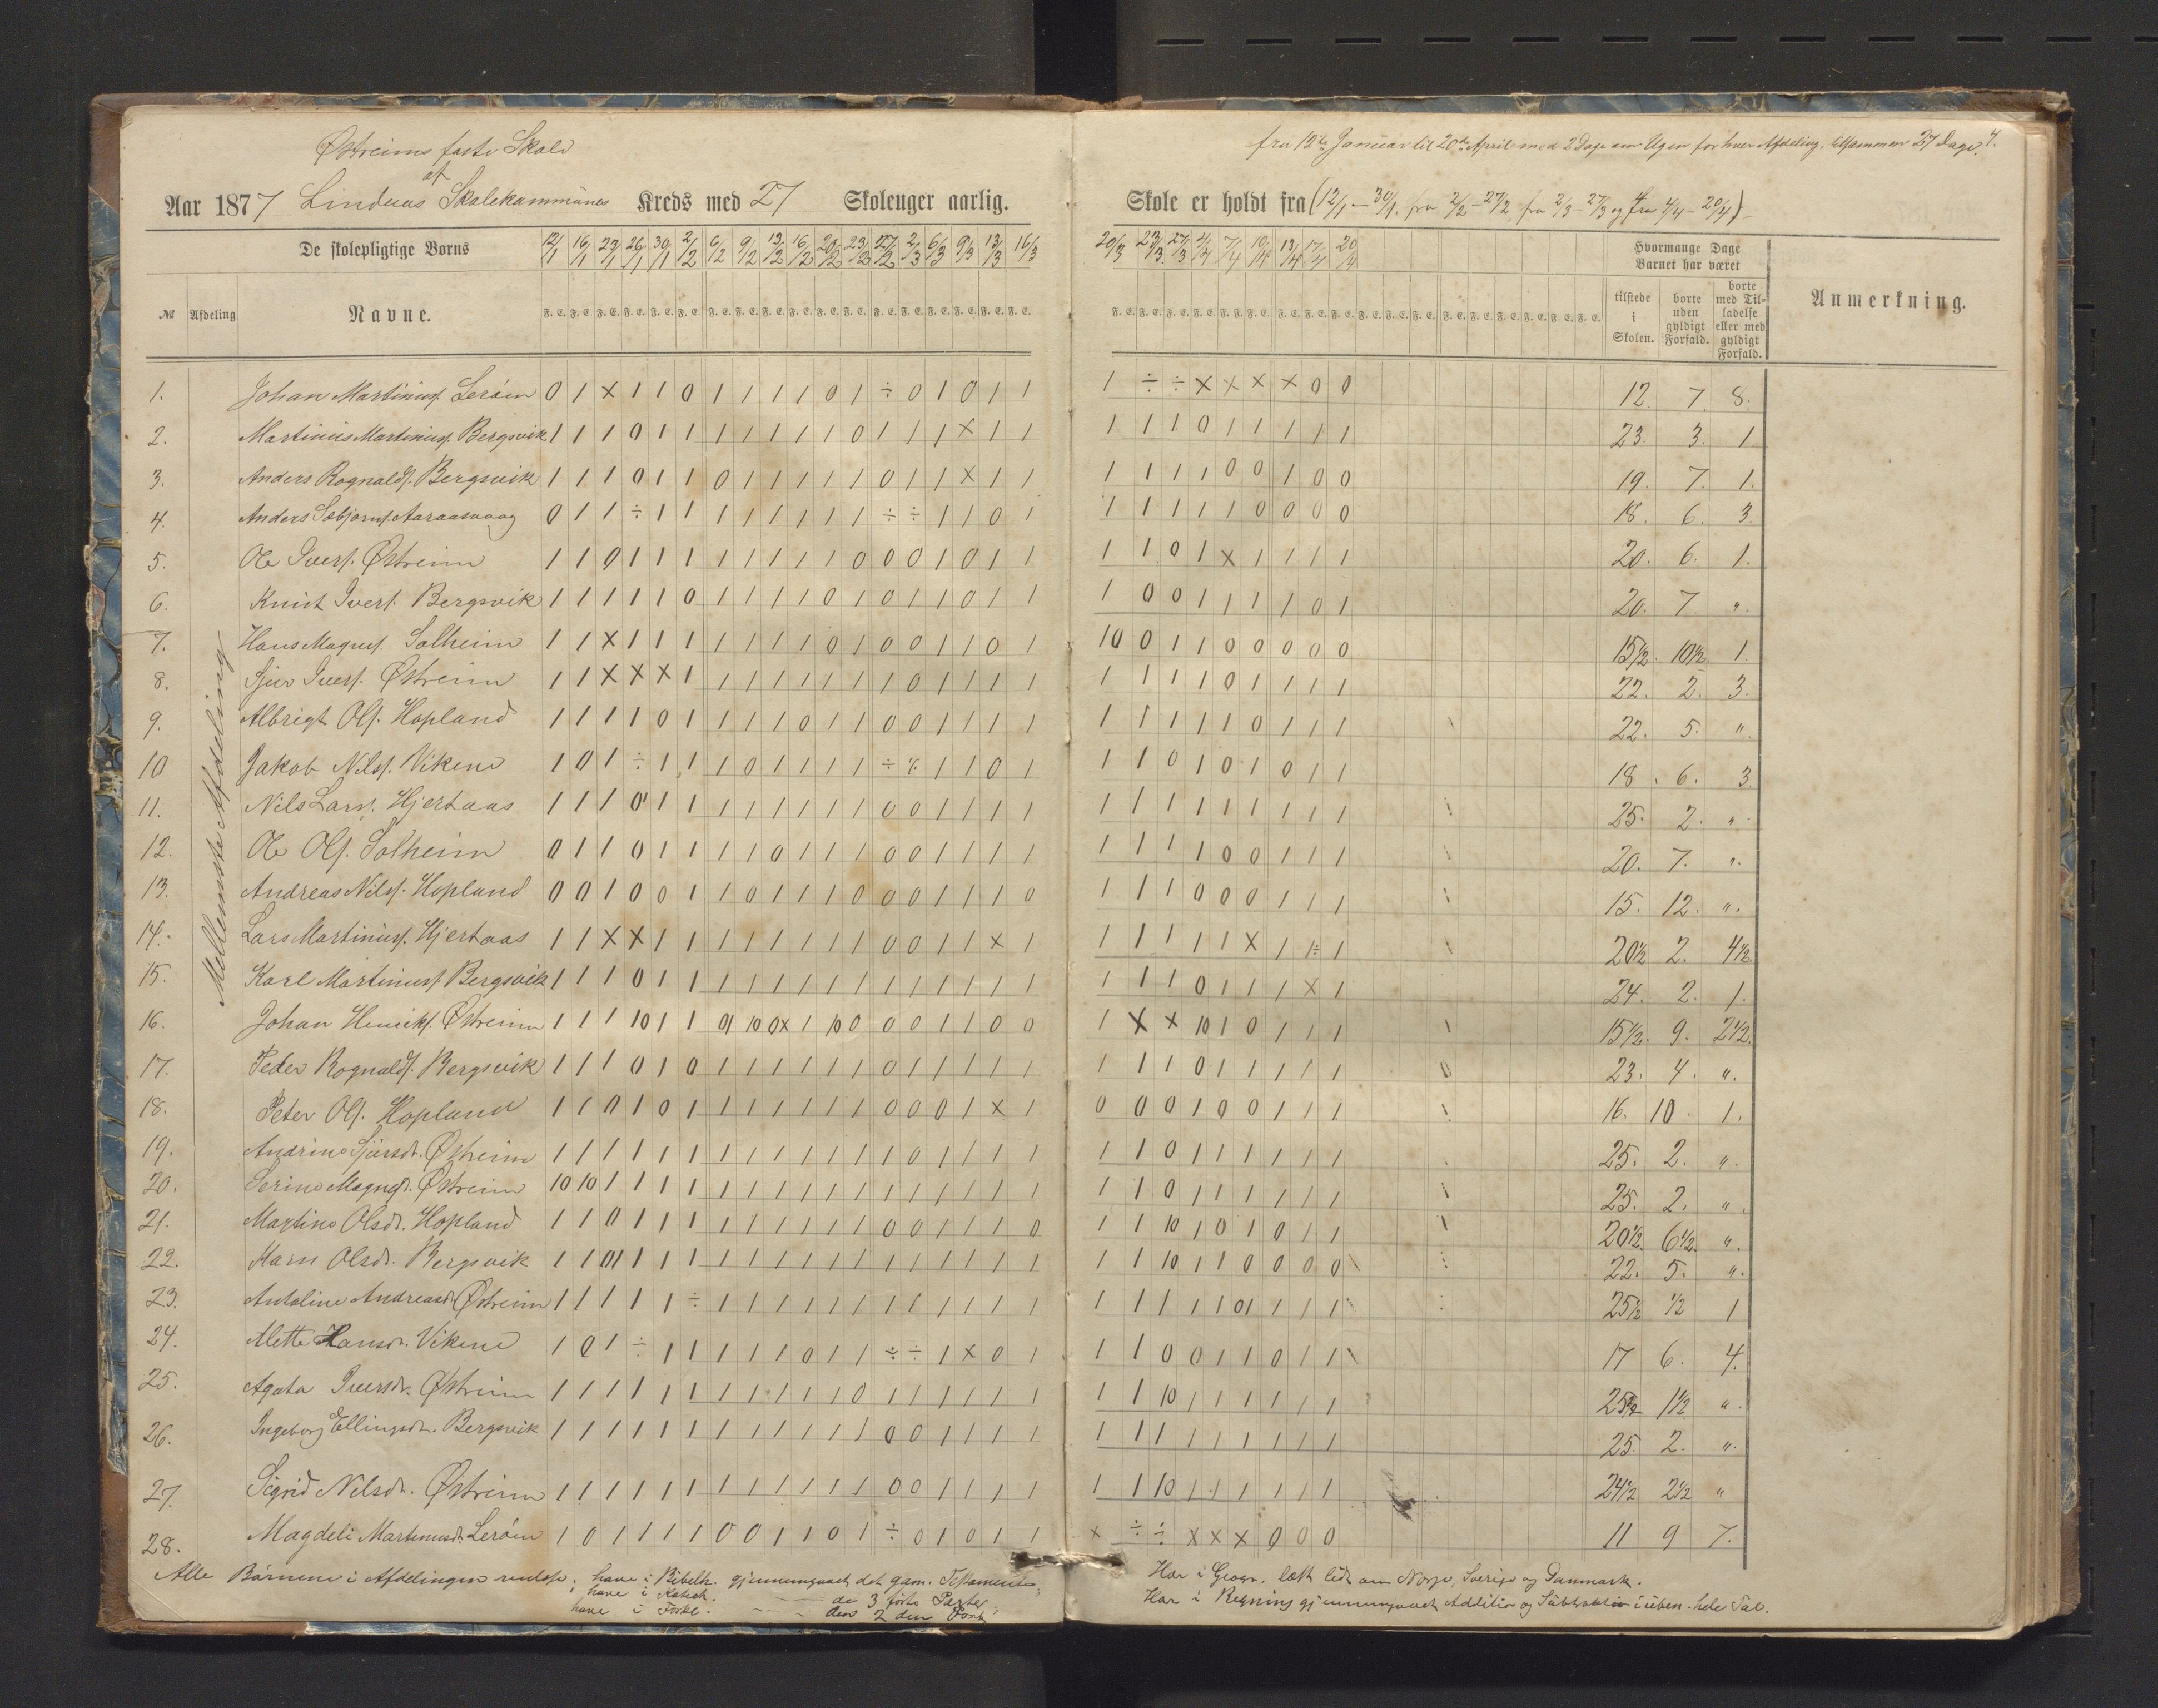 Østreims faste Skole
af
Aar 1877 Lindaas Skolekammünes Kreds med 27 Skolenger aarlig.
De skolepligtige Børns 12/1 16/1 23/1 26/1 30/1 2/2 6/2 9/2 13/2 16/2 20/2 23/2 27/2 2/3 6/3 9/3 13/3 16/3
№ Afdeling Navne. F. E. F. E. F. E. F. E. F. E. F. E. F. E. F. E. F. E. F. E. F. E. F. E. F. E. F. E. F. E. F. E. F. E. F. E.
Mellemste Afdeling
1. Johan Martinusf. Lerøin 0 1 × 1 1 0 1 1 1 1 0 1 ÷ 0 1 0 1 1
2. Martinüs Martinusf. Bergsvik 1 1 1 0 1 1 1 1 1 1 1 0 1 1 1 × 1 1
3. Anders Rognaldf. Bergsvik 1 1 1 0 1 1 0 1 1 1 1 1 0 1 1 × 1 1
4. Anders Sæbjørnf. Aaraasvaag 0 1 1 ÷ 1 1 1 1 1 1 1 1 ÷ ÷ 1 1 0 1
5. Ole Iversf. Østreim 1 1 0 1 1 1 1 1 1 1 1 0 0 0 1 0 1 1
6. Knüt Iversf. Bergsvik 1 1 1 1 1 0 1 1 1 1 0 1 0 1 1 0 1 1
7. Hans Magnusf. Solheim 1 1 × 1 1 1 1 1 1 1 0 1 0 0 1 1 0 1
8. Sjur Iversf. Østreim 1 1 × × × 1 1 1 1 1 1 1 1 0 1 1 1 1
9. Albrigt Olsf. Hopland 1 1 1 1 0 1 1 1 1 0 1 1 0 0 1 1 1 1
10 Jakob Nilsf. Vikene 1 0 1 ÷ 1 1 1 0 1 1 1 1 ÷ ÷ 1 1 0 1
11. Nils Larsf. Hjertaas 1 1 1 0 1 1 1 1 1 1 1 1 0 0 1 1 1 1
12. Ole Olsf. Solheim 0 1 1 0 1 1 1 1 0 1 1 1 0 0 1 1 1 1
13. Andreas Nilsf. Hopland 0 0 1 0 0 1 1 0 1 1 1 0 0 0 1 1 1 0
14. Lars Martinusf. Hjertaas 1 1 × × 1 1 1 1 1 1 1 1 0 0 1 1 × 1
15. Karl Martinusf. Bergsvik 1 1 1 0 1 1 1 1 1 1 1 1 1 1 1 1 1 1
16. Johan Henrikf. Østreim 1 1 1 10 1 1 01 10 0× 1 10 0 0 0 1 1 0 0
17. Peder Rognaldf. Bergsvik 1 1 1 0 1 0 1 1 1 1 1 1 0 1 1 1 1 1
18. Peter Olsf. Hopland 1 1 0 1 0 1 1 1 1 1 1 1 0 0 0 1 × 1
19. Andrine Sjursdr. Østreim 1 1 1 1 1 1 1 1 1 1 1 1 1 0 1 1 1 1
20. Serine Magnesdr. Østreim 10 10 1 1 1 1 1 1 1 1 1 1 1 1 1 1 1 1
21. Martine Olsdr. Hopland 1 1 0 1 1 1 1 1 1 1 1 1 0 0 1 1 1 0
22. Karn Olsdr. Bergsvik 1 1 01 1 1 1 1 1 1 1 1 1 1 1 1 1 1 1
23. Antoline Andreasdr. Østreim 1 1 1 1 1 ÷ 1 1 1 1 1 1 1 1 1 1 1 1
24. Alette Hansdr. Vikene 1 0 1 ÷ 1 1 1 1 1 0 1 1 ÷ ÷ 1 × 0 1
25. Agata Iversdr. Østreim 1 1 1 1 1 1 1 1 1 1 1 0 1 1 1 1 1 1
26. Ingeborg Ellingsdr. Bergsvik 1 1 1 1 1 1 1 1 1 1 1 1 0 0 1 1 1 1
27. Sigrid Nilsdr. Østreim 1 1 1 1 1 1 1 1 1 1 1 1 0 0 1 1 1 1
28. Magdeli Martinusdr. Lerøin 1 0 1 1 1 1 0 0 1 1 0 1 ÷ 0 1 0 1 1
Alle Børnene i Afdelingen have i Bibelh. gjennemgaaet det gam. Testamente
have i Katek. de 3 første Parter
have i Forkl. den 2 den Part
fra 12te Januar til 20de April med 2 Dage om Ugen for hver Afdeling, tilsammen 27 Dage. 4.
Skole er holdt fra (12/1 – 30/1. fra 2/2 – 27/2 fra 2/3 – 27/3 og fra 4/4 – 20/4)
20/3 23/3 27/3 4/4 7/4 10/4 13/4 17/4 20/4 Hvormange Dage Barnet har været
F. E. F. E. F. E. F. E. F. E. F. E. F. E. F. E. F. E. F. E. F. E. F. E. F. E. F. E. F. E. F. E. F. E. F. E. tilstede i Skolen. borte uden gyldigt Forfald. borte med Tilladelse eller med gyldigt Forfald. Anmerkning.
1 ÷ ÷ × × × × 0 0 12. 7. 8.
1 1 1 0 1 1 1 1 1 23. 3. 1.
1 1 1 1 0 0 1 0 0 19. 7. 1.
1 1 1 1 1 0 0 0 0 18. 6. 3.
1 1 0 1 × 1 1 1 1 20. 6. 1.
1 0 0 1 1 1 1 0 1 20. 7. "
10 0 1 1 0 0 0 0 0 15½. 10½. 1.
1 1 1 1 0 1 1 1 1 22. 2. 3.
1 1 1 1 1 0 1 1 1 22. 5. "
1 1 0 1 0 1 0 1 1 18. 6. 3
1 1 1 1 1 1 1 1 1 25. 2. "
1 1 1 1 0 0 1 1 1 20. 7. "
1 1 1 0 0 0 1 1 1 15. 12. "
1 1 1 1 1 × 1 1÷ 1 20½ 2. 4½.
1 1 1 0 1 1 1 × 1 24. 2. 1.
1 × × 10 1 0 1 1 1 15½. 9. 2½.
1 1 1 0 1 1 1 1 1 23. 4. "
0 0 0 1 0 0 1 1 1 16. 10. 1.
1 1 0 1 1 1 1 1 1 25. 2. "
1 1 0 1 1 1 1 1 1 25. 2. "
1 1 10 1 0 1 0 1 1 20½. 6½. "
1 1 10 1 1 0 0 0 0 22. 5. "
1 1 1 1 1 01 1 1 1 25½ ½ 1
1 1 0 0 1 1 0 1 1 17 6. 4.
1 1 10 1 1 1 1 1 1 25½ 1½ "
1 1 1 1 1 1 1 1 1 25. 2. "
1 1 10 1 1 1 1 1 1 24½ 2½ "
× ÷ ÷ × × × 0 0 0 11 9 7.
Har i Geogr. læst lidt om Norge, Sverige og Danmark.
Har i Regning gjennemgaaet Addition og Subtraktion i üben. hele Tal.